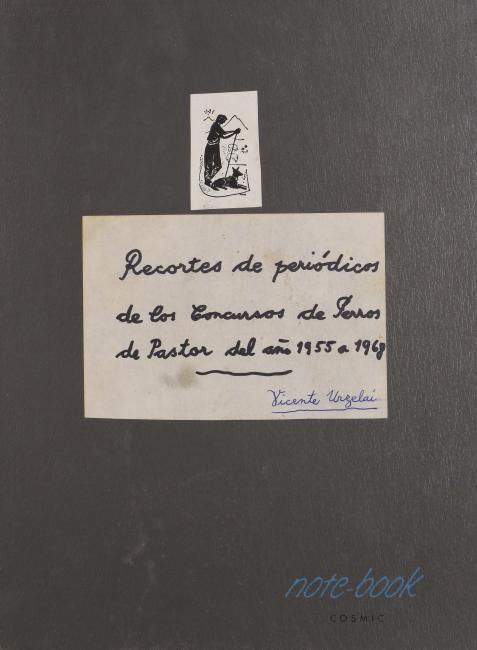 Recortes de periódicos
de los Concursos de Perros
de Pastor del año 1955 a 1968
Vicente Urzelai
note-book
COSMIC